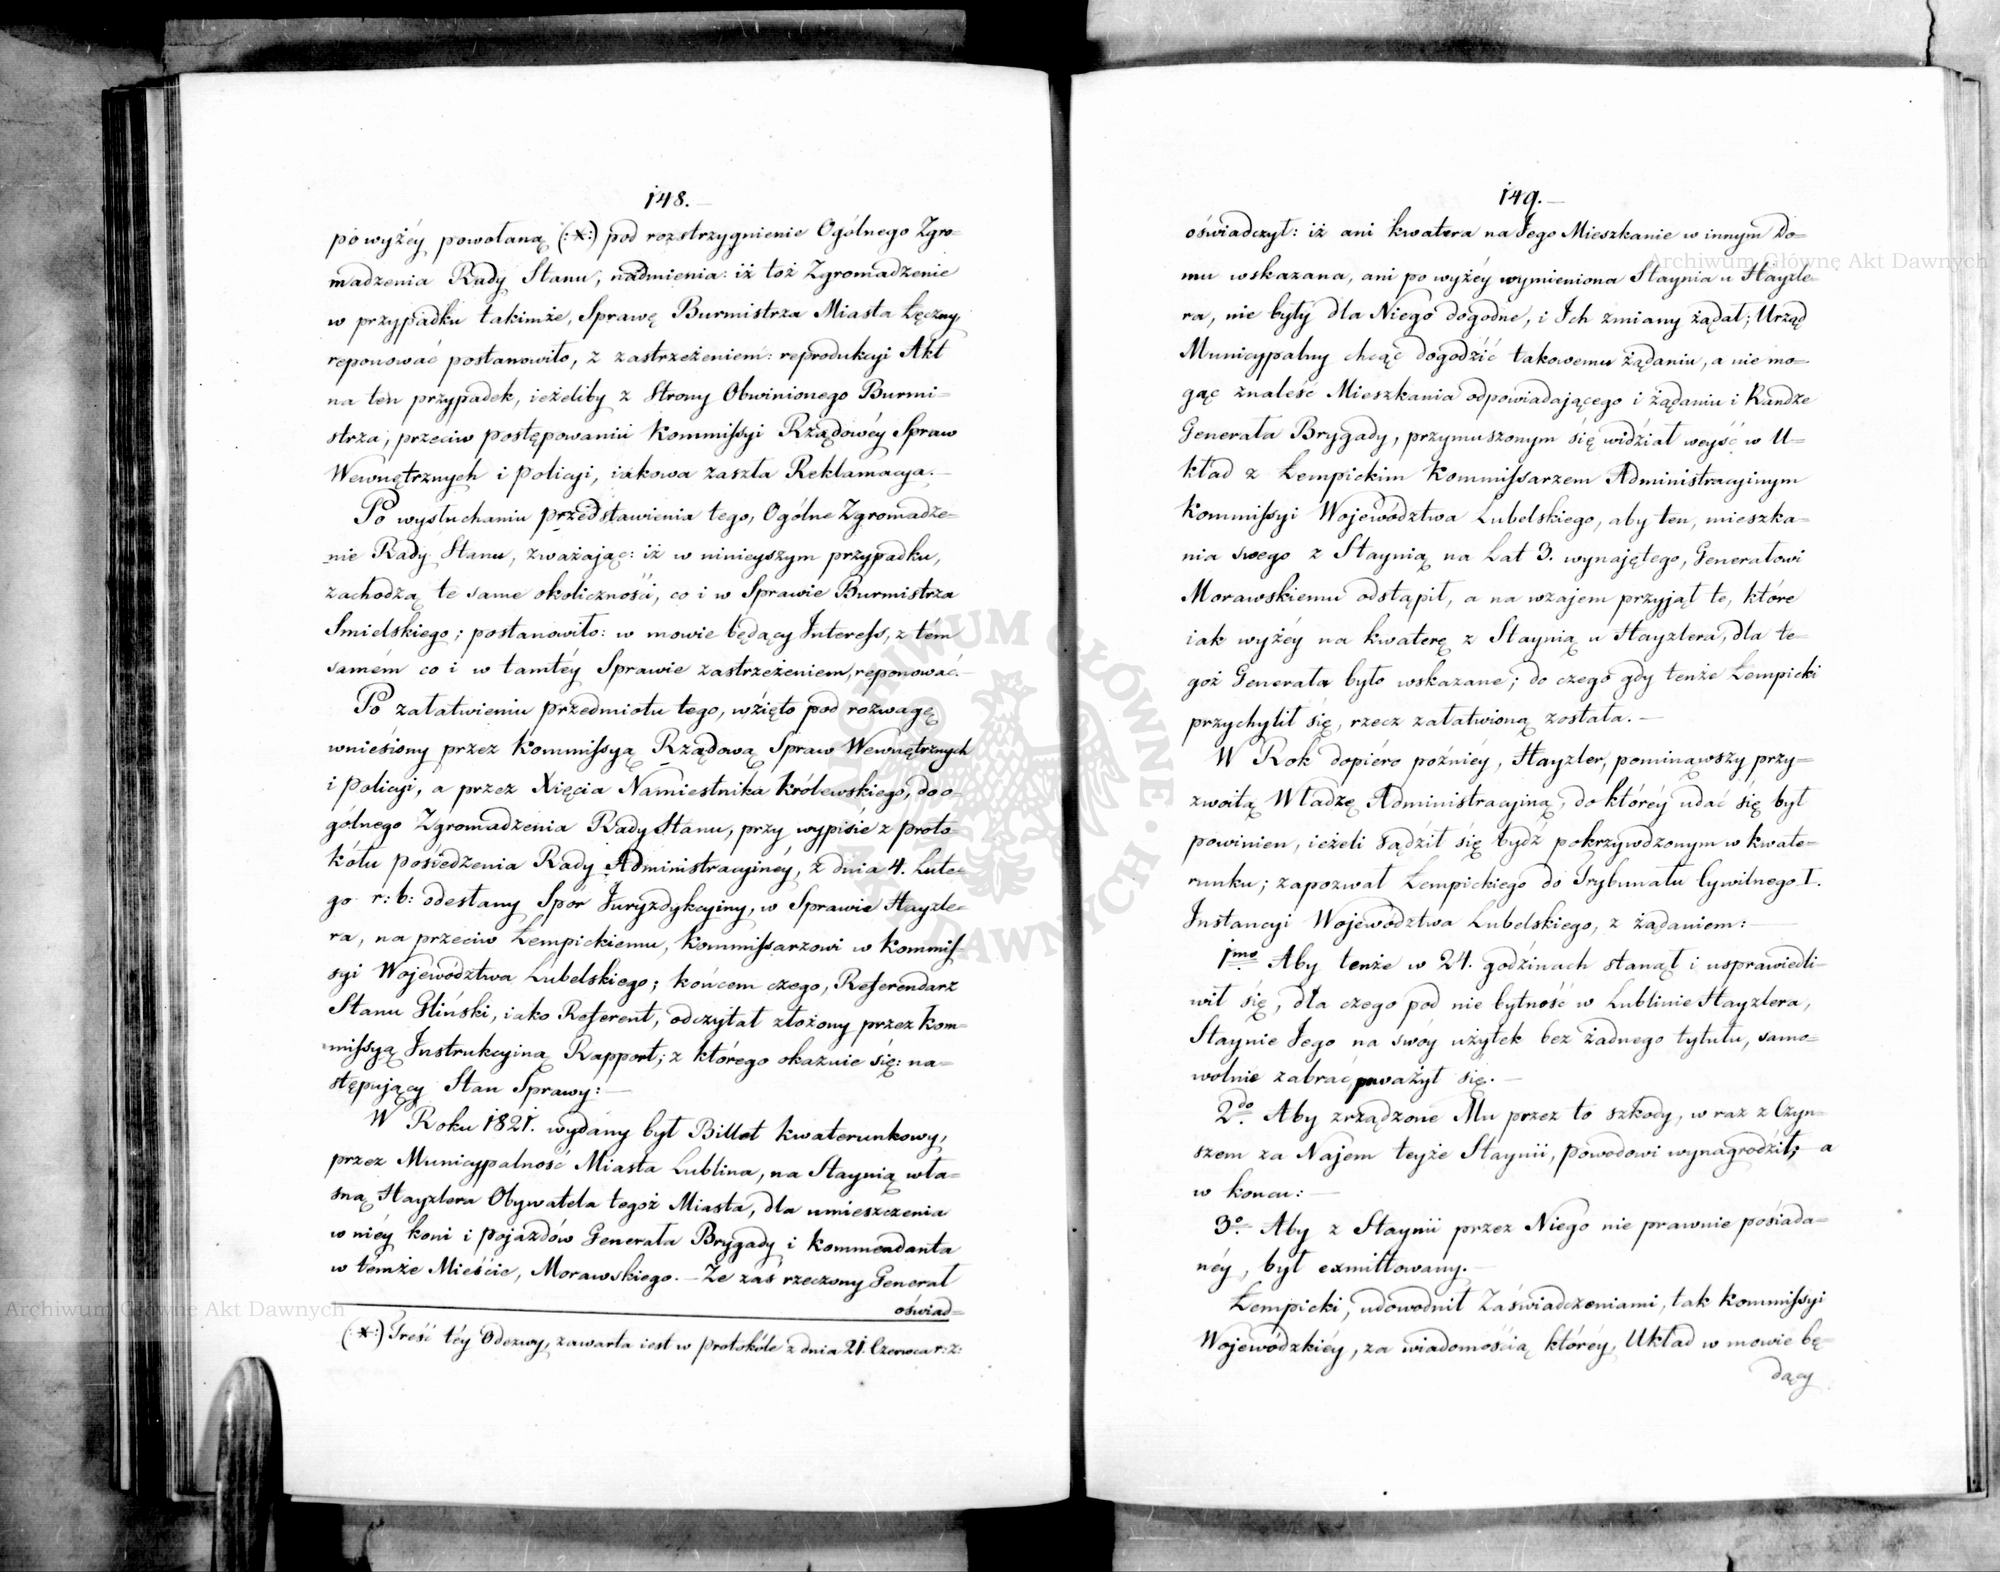 148.
powyżéy powołaną (:*:) pod rozstrzygnienie Ogólnego Zgro=
madzenia Rady Stanu, nadmienia: iż toż Zgromadzenie
w przypadku takimże, Sprawę Burmistrza Miasta Łęczny
reponować postanowiło, z zastrzeżeniem: reprodukcyi Akt
na ten przypadek, ieżeliby z Strony Obwinionego Burmi=
strza, przeciw postępowaniu Kommissyi Rządowéy Spraw
Wewnętrznych i Policyi, iakowa zaszła Reklamacya.—
Po wysłuchaniu przedstawienia tego, Ogólne Zgromadze=
nie Rady Stanu, zważając: iż w ninieyszym przypadku,
zachodzą te same okoliczności, co i w Sprawie Burmistrza
Smielskiego; postanowiło: w mowie będący Interess, z tém
samém co i w tamtéy Sprawie zastrzeżeniem, reponować.—
Po załatwieniu przedmiotu tego, wzięto pod rozwagę
wniesiony przez Kommissyą Rządową Spraw Wewnętrznych
i Policyi, a przez Xięcia Namiestnika Królewskiego, do o=
gólnego Zgromadzenia Rady Stanu, przy wypisie z proto=
kółu posiedzenia Rady Administracyinéy, z dnia 4. Lute=
go r: b: odesłany Spór Juryzdykcyiny, w Sprawie Hayzle=
ra, na przeciw Łempickiemu, Kommissarzowi w Kommis=
syi Województwa Lubelskiego; końcem czego, Referendarz
Stanu Gliński, iako Referent, odczytał złożony przez Kom=
missyą Instrukcyiną Rapport; z którego okazuie się: na=
stępujący Stan Sprawy:—
W Roku 1821. wydany był Billet kwaterunkowy,
przez Municypalność Miasta Lublina, na Staynią wła=
sną Hayzlera Obywatela tegoż Miasta, dla umieszczenia
w niéy koni i pojazdów Generała Brygady i Kommendanta
w témże Mieście, Morawskiego.— Że zaś rzeczony Generał
oświad=
(:*:) Treść téy Odezwy, zawarta iest w protokóle z dnia 21. Czerwca r: z:
149.
oświadczył: iż ani kwatera na Jego Mieszkanie w innym Do=
mu wskazana, ani powyżéy wymieniona Staynia u Hayzle=
ra, nie były dla Niego dogodne, i Ich zmiany żądał; Urząd
Municypalny chcąc dogodzić takowemu żądaniu, a nie mo=
gąc znaleść Mieszkania odpowiadającego i żądaniu i Randze
Generała Brygady, przymuszonym się widział weyść w U=
kład z Łempickim Kommissarzem Administracyinym
Kommissyi Województwa Lubelskiego, aby ten, mieszka=
nia swego z Staynią na Lat 3. wynajętego, Generałowi
Morawskiemu odstąpił, a na wzajem przyjął te, które
iak wyżéy na kwaterę z Staynią u Hayzlera, dla te=
goż Generała było wskazane; do czego gdy tenże Łempicki
przychylił się, rzecz załatwioną została.—
W Rok dopiéro poźniéy, Hayzler, pominąwszy przy=
zwoitą Władzę Administracyiną, do któréy udać się był
powinien, ieżeli sądził się bydź pokrzywdzonym w kwate=
runku; zapozwał Łempickiego do Trybunału Cywilnego I.
Instancyi Województwa Lubelskiego, z żądaniem:—
1mo. Aby tenże w 24. godzinach stanął i usprawiedli=
wił się, dla czego pod nie bytność w Lublinie Hayzlera,
Staynie Jego na swóy użytek bez żadnego tytułu, samo=
wolnie zabrać poważył się.—
2do. Aby zrządzone Mu przez to szkody, w raz z Czyn=
szem za Najem teyże Staynii, powodowi wynagrodził; a
w końcu:—
3o. Aby z Staynii przez Niego nie prawnie posiada=
néy, był exmittowany.—
Łempicki, udowodnił Zaświadczeniami, tak Kommissyi
Wojewódzkiéy, za wiadomością któréy, Układ w mowie bę=
dący
Archiwum Główne Akt Dawnych
Archiwum Główne Akt Dawnych
ARCHIWUM GŁÓWNE AKT DAWNYCH